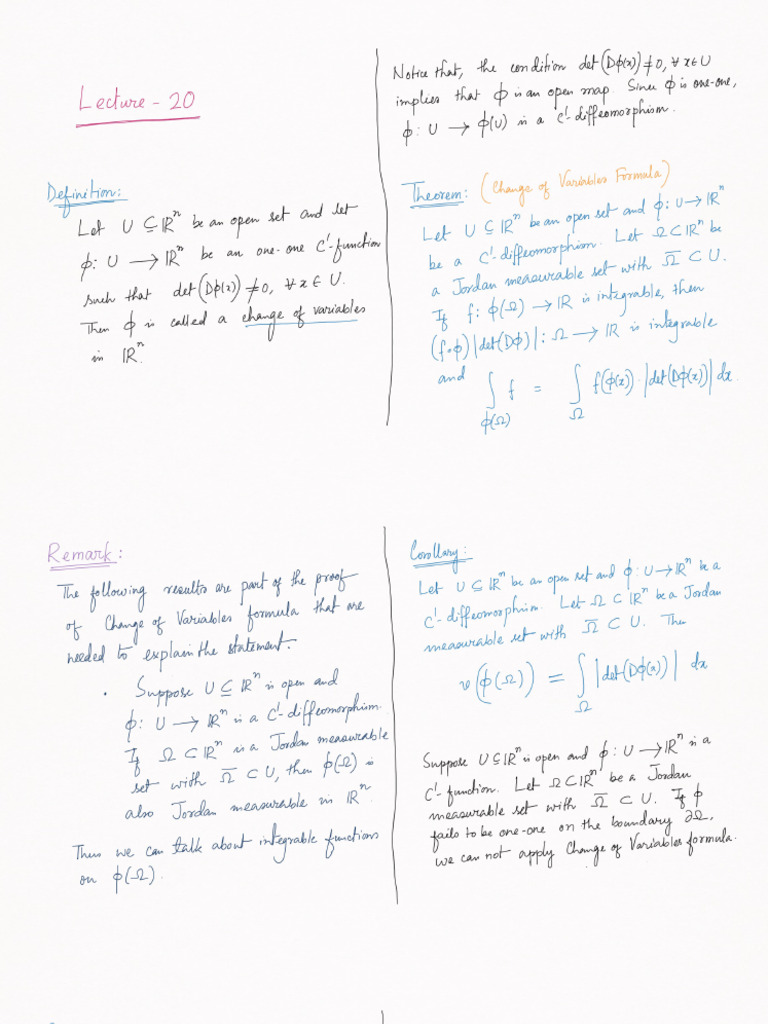 Lecture - 20
Definition:
Let U ⊆ ℝⁿ be an open set and let
ϕ: U → ℝⁿ be an one-one C¹-function
such that det(Dϕ(x)) ≠ 0, ∀ x ∈ U.
Then ϕ is called a change of variables
in ℝⁿ.
Notice that, the condition det(Dϕ(x)) ≠ 0, ∀ x ∈ U
implies that ϕ is an open map. Since ϕ is one-one,
ϕ: U → ϕ(U) is a C¹-diffeomorphism.
Theorem: (Change of Variables Formula)
Let U ⊆ ℝⁿ be an open set and ϕ: U → ℝⁿ
be a C¹-diffeomorphism. Let Ω ⊂ ℝⁿ be
a Jordan measurable set with Ω̅ ⊂ U.
If f: ϕ(Ω) → ℝ is integrable, then
(f∘ϕ) |det(Dϕ)| : Ω → ℝ is integrable
and ∫_{ϕ(Ω)} f = ∫_Ω f(ϕ(x)) · |det(Dϕ(x))| dx.
Remark:
The following results are part of the proof
of Change of Variables formula that are
needed to explain the statement.
• Suppose U ⊆ ℝⁿ is open and
ϕ: U → ℝⁿ is a C¹-diffeomorphism.
If Ω ⊂ ℝⁿ is a Jordan measurable
set with Ω̅ ⊂ U, then ϕ(Ω) is
also Jordan measurable in ℝⁿ.
Thus we can talk about integrable functions
on ϕ(Ω).
Corollary:
Let U ⊆ ℝⁿ be an open set and ϕ: U → ℝⁿ be a
C¹-diffeomorphism. Let Ω ⊂ ℝⁿ be a Jordan
measurable set with Ω̅ ⊂ U. Then
v(ϕ(Ω)) = ∫_Ω |det(Dϕ(x))| dx
Suppose U ⊆ ℝⁿ is open and ϕ: U → ℝⁿ is a
C¹-function. Let Ω ⊂ ℝⁿ be a Jordan
measurable set with Ω̅ ⊂ U. If ϕ
fails to be one-one on the boundary ∂Ω,
we can not apply Change of Variables formula.